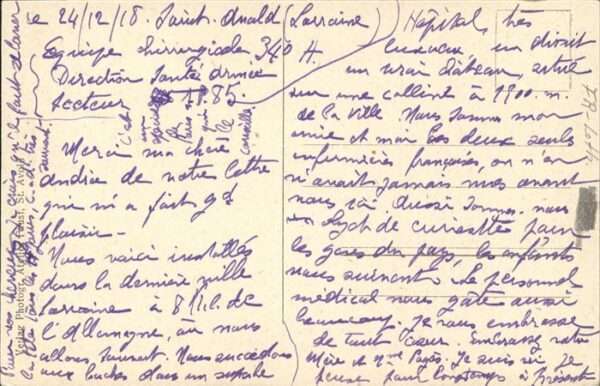 Le 24/12/18. Saint-Avold (Lorraine)
Equipe chirurgicale 340 A.
Direction Santé Armée
Secteur 85.
c'est
un
qui
le
Merci ma chère
Andrée de votre lettre
qui m'a fait gd
plaisir -
Nous voici installés
dans la dernière ville
Lorraine à 8 kil. de
l'Allemagne, où nous
allons souvent. Nous succédons
aux boches dans un superbe
Hôpital, très
luxueux, on dirait
un vrai château, situé
sur une colline à 1900 m.
de la ville. Nous sommes mon
amie et moi les deux seuls
infirmières françaises, on n'en
n'avait jamais vues avant
nous ici. Aussi sommes-nous
objet de curiosités pour
les gosses du pays, les enfants
nous suivent. Le personnel
médical nous gâte aussi
beaucoup. Je vous embrasse
de tout cœur. Embrassez votre
Mère et Mme Pagès. Je suis ici je
pense pour longtemps à présent
Pour vos cheveux je crois qu'il faut
la tête tous les
souvent.
Verlag Photogr. Atelier Faust, St. Avold